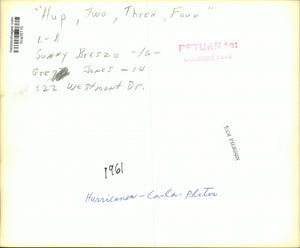 "Hup, Two, Three, Four"
L-R
Sonny Brezzo -16-
Greg Jones -14
522 Westmont Dr.
RETURN
1961
SAM PIERSON
Hurricanes - Carla - Photos